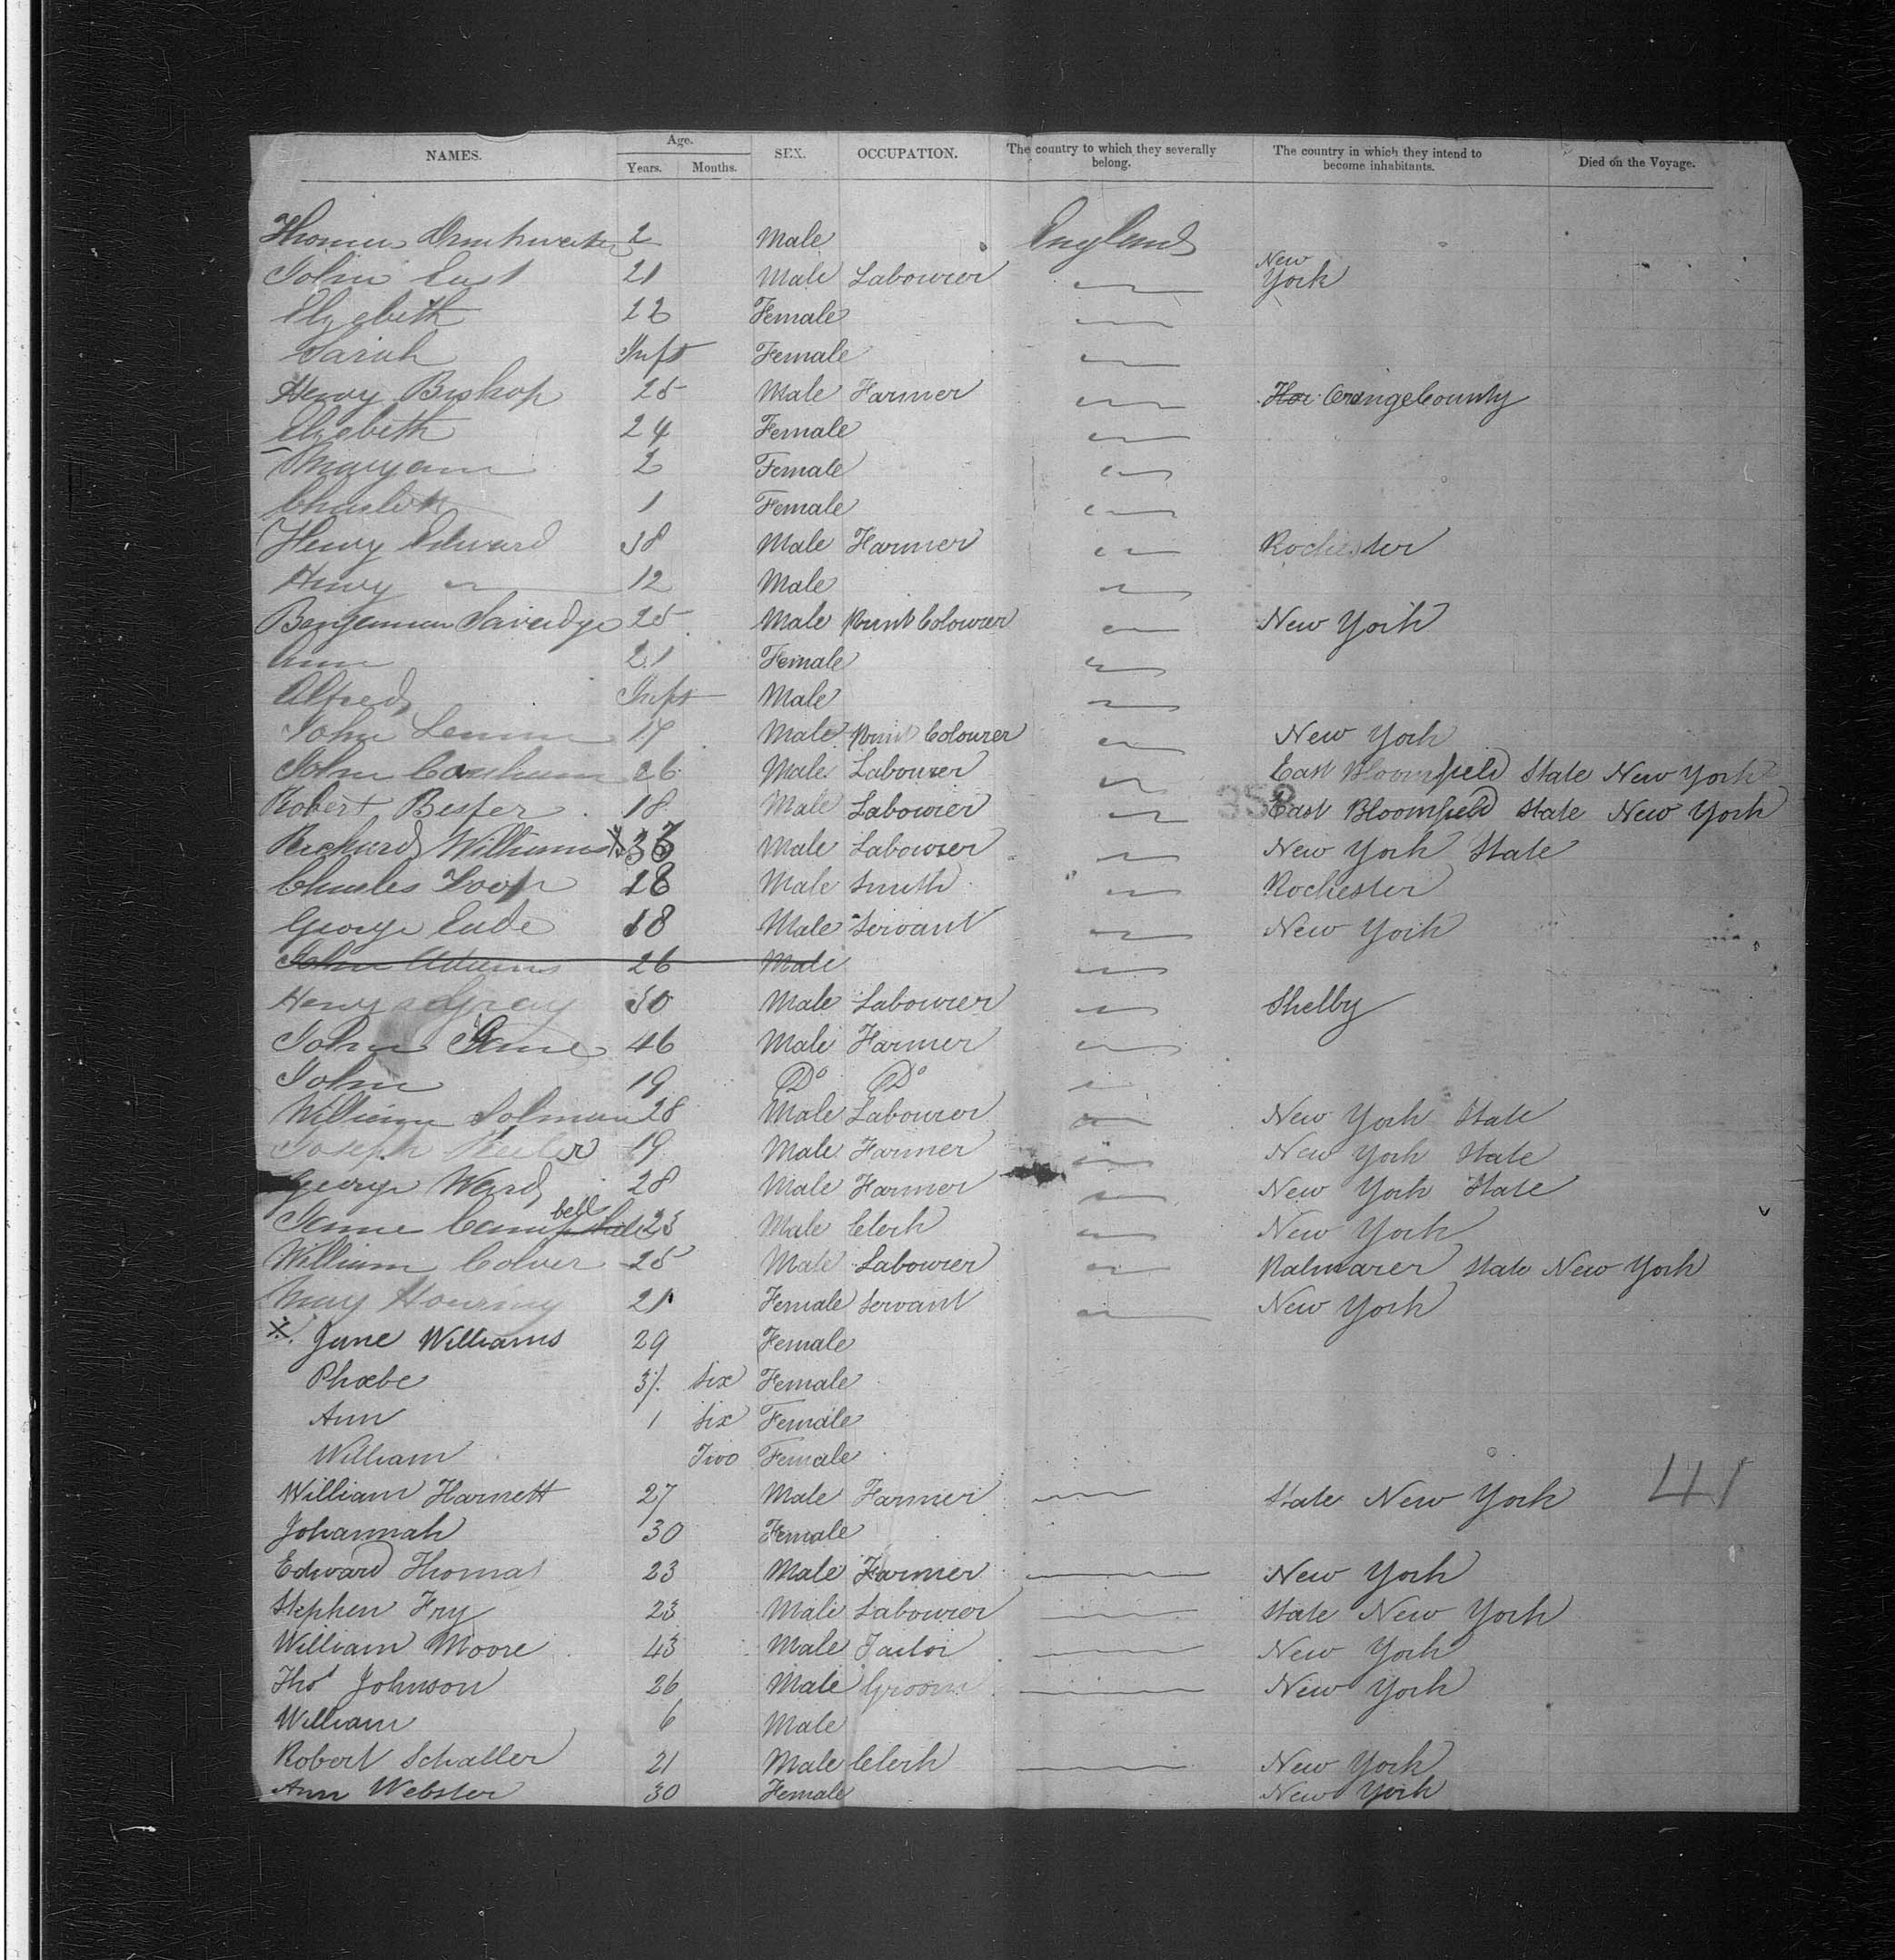 NAMES. Age. Years. Months. SEX. OCCUPATION. The country to which they severally belong. The country in which they intend to become inhabitants. Died on the Voyage.
Thomas Drinkwater 2 Male England
John East 21 Male Labourer New York
Elizebeth 22 Female
Sariah Inft Female
Henry Bishop 25 Male Farmer Orange County
Elizebeth 24 Female
Maryann 2 Female
1 Female
Henry Edward 38 Male Farmer Rochester
Henry 12 Male
Benjamin 25 Male Print Colourer New York
Ann 21 Female
Alfred Inft Male
John 17 Male Print Colourer New York
John 26 Male Labourer East Bloomfield State New York
Robert Besfer 18 Male Labourer East Bloomfield State New York
358
Richard Williams Male Labourer New York State
Charles 28 Male Smith Rochester
George Eade 18 Male Servant New York
John Adams 26 Male
Henry Gray 30 Male Labourer Shelby
John 46 Male Farmer
John 19 Do Do
William Solman 28 Male Labourer New York State
Joseph 19 Male Farmer New York State
George Ward 28 Male Farmer New York State
Campbell 23 Male Clerk New York
William Colver 25 Male Labourer Palmarer State New York
May 21 Female Servant New York
Jane Williams 29 Female
Phœbe 3 Six Female
Ann 1 Six Female
William Two Female
William Harnett 27 Male Farmer State New York
41
Johannah 30 Female
Edward Thomas 23 Male Farmer New York
Stephen Fry 23 Male Labourer State New York
William Moore 43 Male Tailor New York
Thos Johnson 26 Male Groom New York
William 6 Male
Robert Schaller 21 Male Clerk New York
Ann Webster 30 Female New York